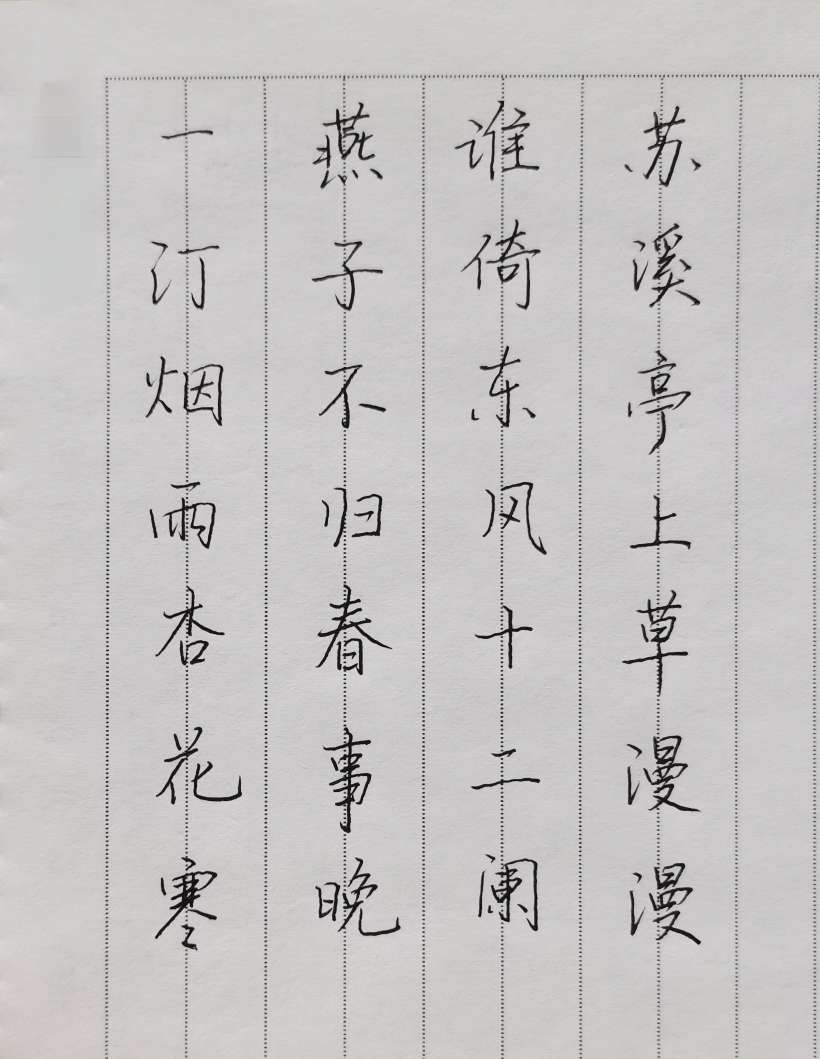 苏溪亭上草漫漫
谁倚东风十二阑
燕子不归春事晚
一汀烟雨杏花寒